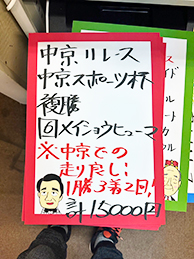 中京11レース
中京スポーツ杯
複勝
⑫メイショウヒューマ
※中京での
走り良し!
1勝3着2回!
計15000円